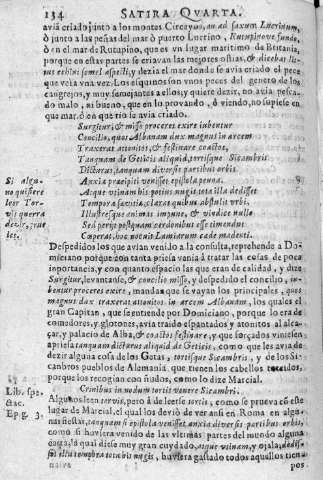 134 SATIRA QVARTA.
avia criado junto a los montes Circeyos, an ad saxum Lucrinum,
ò junto a las peñas del mar ò puerto Lucrino, Rutupinove funde,
ò en el mar de Rutupino, que es un lugar maritimo de Britania,
porque en estas partes se criavan las mejores ostias, & dicebat
semel aspecti, y dezia el mar donde se avia criado el pece
que veía una vez. Los son unos peces del genero de los
cangrejos, y muy semejantes a ellos, y quiere dezir, no avia pesca-
do malo, ni bueno, que en lo provando, ò viendo, no supiesse en
que mar, ò en que rio se avia criado.
Surgitur, & misso proceres exire iubentur
Concilio, quos Albanam dux magnus in arcem
Traxerat attonitos, & festinare coactos,
Tanquam de Getis aliquid, torvisque Sicambris
Dicturus, tanquam diversis partibus orbis
Si algu- Anxia præcipiti venisset epistola penna.
no quisiere Atque utinam his potius nugis tota illa dedisset
leer Tor- Tempora sævitiæ, claras quibus abstulit urbi.
vis querra Illustresque animas impune, & vindice nullo
dezir, crue Sed perijt postquam cerdonibus esse timendus
les. Cœperat, hoc nocuit Lamiarum cæde madenti.
Despedidos los que avian venido a la consulta, reprehende a Do-
miciano porque con tanta priesa vania à tratar las cosas de poca
inportancia, y con quanto espacio las que eran de calidad, y dize
Surgitur, levantaròse, & concilio misso, y despedido el concilio,
iubentur proceres exire, mandan que se vayan los principales, quos
magnus dux traxerat attonitos in arcem Albanam, los quales el
gran Capitan, que se entiende por Domiciano, porque lo era de
comedores, y glotones, avia traido espantados y atonitos al alca-
çar, y palacio de Alba, & coactos festinare, y que forçados viniessen
apriesa tanquam dicturus aliquid de Geticis, como que les avia de
dezir alguna cosa de los Getas, torvisque Sicambris, y de los Si-
canbros pueblos de Alemania, que tienen los cabellos torcidos,
porque los recogian con ñudos, como lo dize Marcial.
Lib. spe- Crinibus in nodum tortis venere Sicambri.
ctac. Algunos leen torvis, pero à de leerse tortis, como se prueva con este
Ep.g. 3. lugar de Marcial, el qual los deviò de ver ansi en Roma en algu-
nas fiestas, tanquam si epistola venisset anxia diversis partibus orbis,
como si huviera venido de las ultimas partes del mundo alguna
carta, la qual diesse muy gran cuydado, atque utinam, y ojala,
illa tempora tota his nugis, huviera gastado todos aquellos tien-
pos